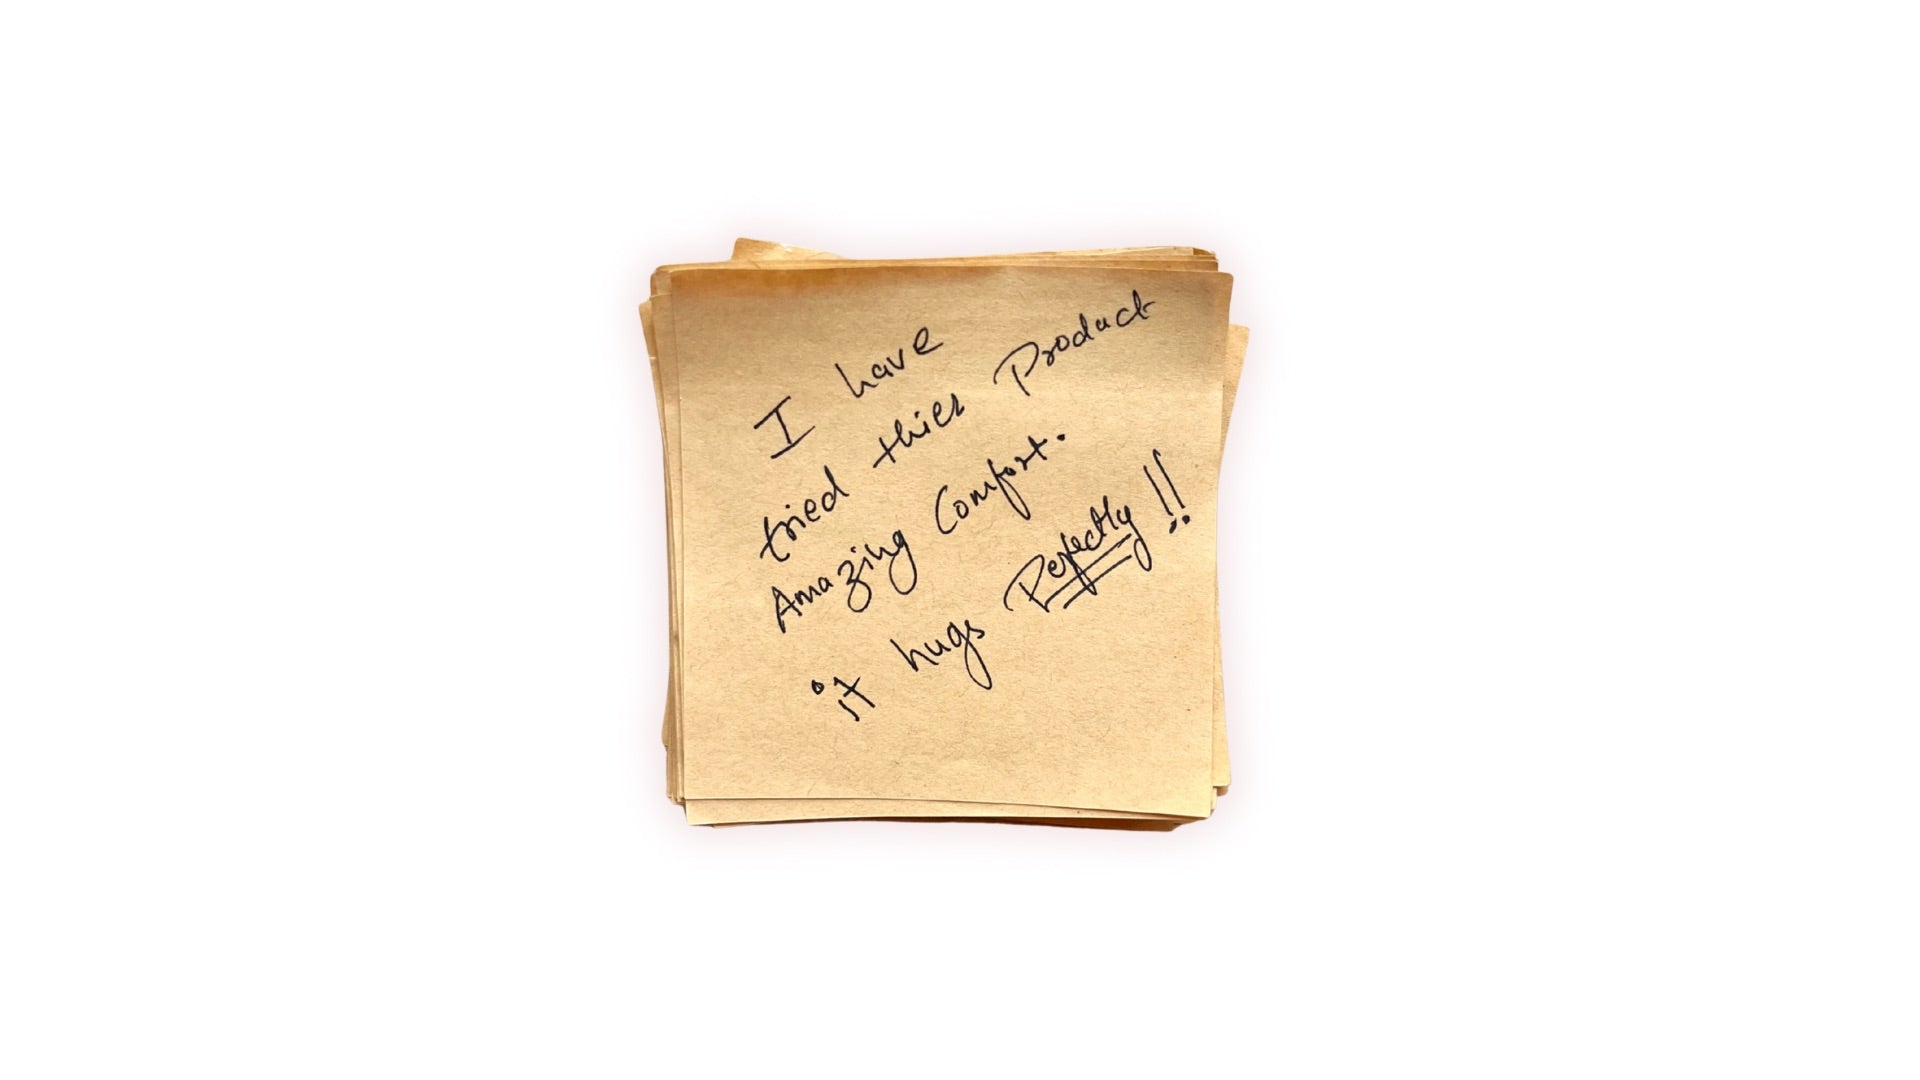 I have
tried thier Product
Amazing Comfort.
it hugs Perfectly !!